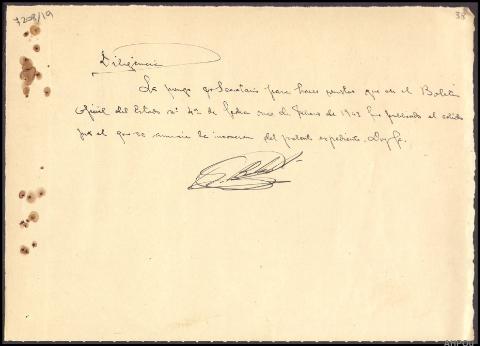 7208/19
38
Diligencia
La pongo yo Secretario para hacer constar que en el Boletin
Oficial del Estado nº 42 de fecha once de Febrero de 1943 fue publicado el edicto
por el que se anuncia la incoacion del presente expediente. Doy fe.
AHPOU